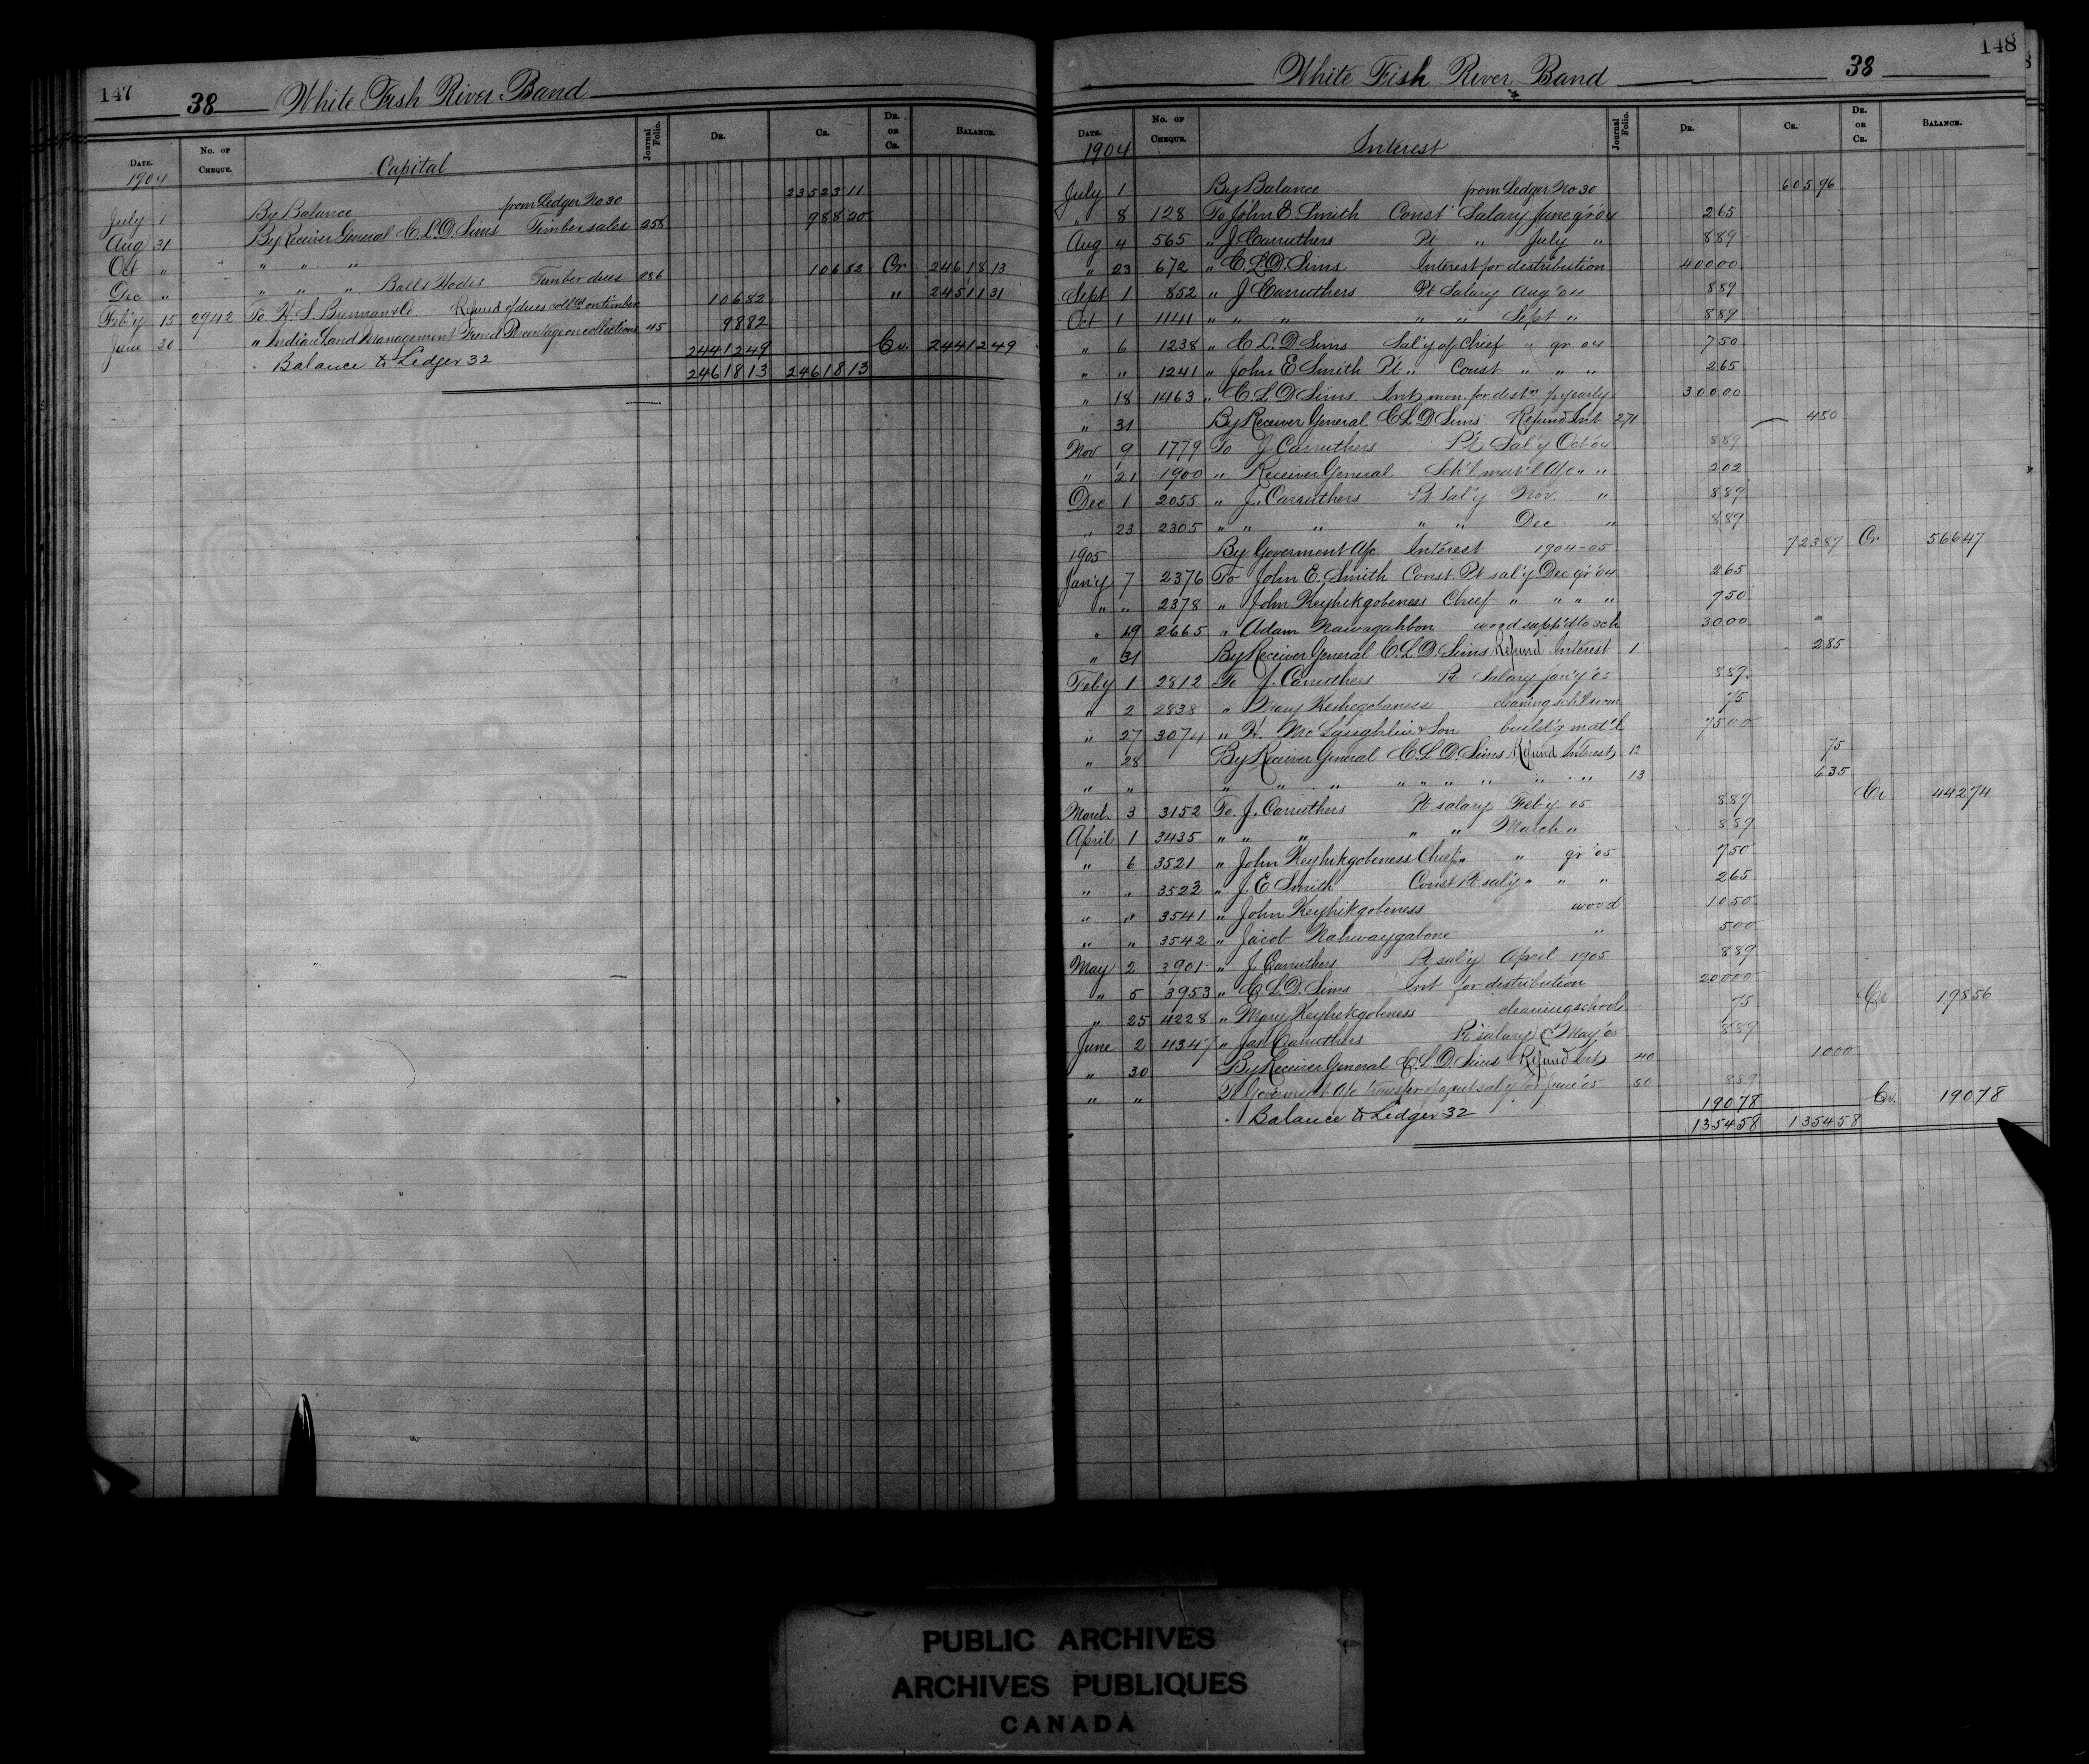 147
38 White Fish River Band
Date. No. of Cheque. Journal Folio. Dr. Cr. Dr. or Cr. Balance.
1904 Capital
July 1 By Balance from Ledger No 30 23523 11
Aug 31 By Receiver General C.L.D. Sims Timber sales 258 988 20
Oct " " " "
Dec " " " " Timber dues 286 106 82 Cr 24618 13
Feb'y 15 2942 To H. S. & Co Refund of dues coll'td on timber 106 82 " 24511 31
June 30 " Indian Land Management Fund Percentage on collections 45 98 82
Balance to Ledger 32 24412 49 Cr. 24412 49
24618 13 24618 13
148
White Fish River Band 38
Date. No. of Cheque. Journal Folio. Dr. Cr. Dr. or Cr. Balance.
1904 Interest
July 1 By Balance from Ledger No 30 605 96
" 8 128 To John E Smith Const Salary June qr '04 2 65
Aug 4 565 " J Carruthers Pt " July " 8 89
" 23 672 " C.L.D. Sims Interest for distribution 400 00
Sept 1 852 " J Carruthers Pt Salary Aug '04 8 89
Oct 1 1141 " " " " " Sept " 8 89
" 6 1238 " C L. D Sims Sal'y of Chief " qr 04 7 50
" " 1241 " John E Smith Pt " Const " " " 2 65
" 18 1463 " C. L D Sims Int mon. for dist'n 300 00
" 31 By Receiver General C L D Sims Refund Int 271 4 50
Nov 9 1779 To J. Carruthers Pt Sal'y Oct '04 8 89
" 21 1900 " Receiver General Sch'l mat'l A/c " " 2 02
Dec 1 2055 " J. Carruthers Pt Sal'y Nov " 8 89
" 23 2305 " " " " " Dec " 8 89
1905 By Goverment A/c Interest 1904-05 723 87 Cr 566 47
Jan'y 7 2376 To John E. Smith Const. Pt sal'y Dec qr '04 2 65
" " 2378 " John Keyhikgobeness Chief " " " " 7 50
" 19 2665 " Adam Nawagahbon wood suppl'd to sch 30 00
" 31 By Receiver General C. L D. Sims Refund Interest 1 2 85
Feb'y 1 2812 To J. Carruthers Pt Salary Jan'y '05 8 89
" 2 2838 " Mary Keshegobaness cleaning sch'l room 75
" 27 3074 " H. Mc Laughlin & Son build'g mat'l 75 00
" 28 By Receiver General C. L D Sims Refund Interest 12 75
" " " " " " " " " " " 13 6 35
March 3 3152 To J. Carruthers Pt salary Feb'y 05 8 89 Cr 442 74
April 1 3435 " " " " " March " 8 89
" 6 3521 " John Keyhikgobeness Chief " " qr '05 7 50
" " 3522 " J. E Smith Const Pt sal'y " " " 2 65
" " 3541 " John Keyhikgobeness wood 10 50
" " 3542 " Jacob Nahwaygabone " 5 00
May 2 3901 " J Carruthers Pt sal'y April 1905 8 89
" 5 3953 " C L. D. Sims Int for distribution 200 00
" 25 4228 " Mary Keyhikgobeness cleaning school 75 Cr 198 56
June 2 4347 " Jas Carruthers Pt salary May '05 8 89
" 30 By Receiver General C. L. D. Sims Refund Int 40 10 00
" " To Goverment A/c transfer of agents sal'y for June '05 50 8 89
Balance to Ledger 32 190 78 Cr. 190 78
1354 58 1354 58
PUBLIC ARCHIVES
ARCHIVES PUBLIQUES
CANADA